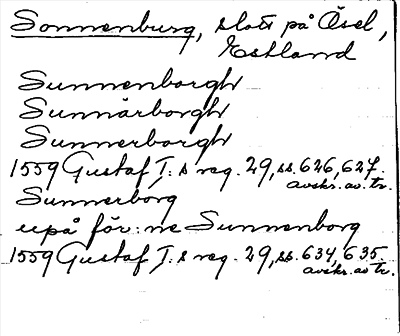 Sonnenburg, slott på Ösel,
Estland
Sunnenborgh
Sunnårborgh
Sunnerborgh
1559 Gustaf I:s reg. 29, ss. 626, 627.
avskr. av tr.
Sunnerborg
uppå för:ne Sunnenborg
1559 Gustaf I:s reg. 29, ss. 634, 635.
avskr. av tr.